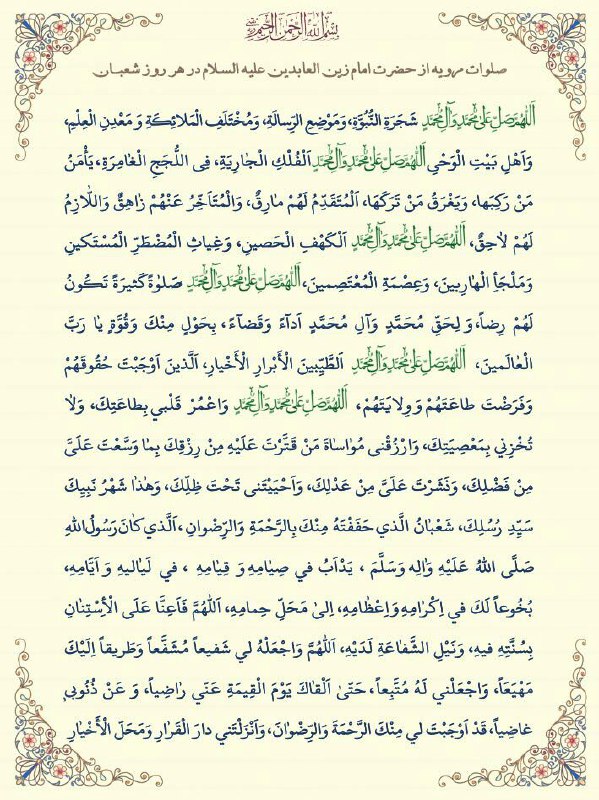 بِسْمِ اللّٰهِ الرَّحْمٰنِ الرَّحِيمِ
صلوات مرویه از حضرت امام زین العابدین علیه السلام در هر روز شعبان
اَللّٰهُمَّ صَلِّ عَلىٰ مُحَمَّدٍ وَآلِ مُحَمَّدٍ شَجَرَةِ النُّبُوَّةِ، وَمَوْضِعِ الرِّسالَةِ، وَمُخْتَلَفِ الْمَلائِكَةِ وَ مَعْدِنِ الْعِلْمِ،
وَاَهْلِ بَيْتِ الْوَحْىِ اَللّٰهُمَّ صَلِّ عَلىٰ مُحَمَّدٍ وَآلِ مُحَمَّدٍ اَلْفُلْكِ الْجارِيَةِ، فِى اللُّجَجِ الْغامِرَةِ، يَأْمَنُ
مَنْ رَكِبَها، وَيَغْرَقُ مَنْ تَرَكَهَا، اَلْمُتَقَدِّمُ لَهُمْ مارِقٌ، وَالْمُتَاَخِّرُ عَنْهُمْ زاهِقٌ وَاللّازِمُ
لَهُمْ لاٰحِقٌ، اَللّٰهُمَّ صَلِّ عَلىٰ مُحَمَّدٍ وَآلِ مُحَمَّدٍ اَلْكَهْفِ الْحَصينِ، وَغِياثِ الْمُضْطَرِّ الْمُسْتَكينِ
وَمَلْجَأِ الْهارِبينَ، وَعِصْمَةِ الْمُعْتَصِمينَ، اَللّٰهُمَّ صَلِّ عَلىٰ مُحَمَّدٍ وَآلِ مُحَمَّدٍ صَلوٰةً كَثيرَةً تَكُونُ
لَهُمْ رِضاً، وَ لِحَقِّ مُحَمَّدٍ وَآلِ مُحَمَّدٍ اَدآءً وَقَضآءً، بِحَوْلٍ مِنْكَ وَقُوَّةٍ يا رَبَّ
الْعٰالَمينَ، اَللّٰهُمَّ صَلِّ عَلىٰ مُحَمَّدٍ وَآلِ مُحَمَّدٍ اَلطَّيِّبينَ الْأَبْرارِ الْأَخْيارِ، اَلَّذينَ اَوْجَبْتَ حُقُوقَهُمْ
وَفَرَضْتَ طاعَتَهُمْ وَوِلايَتَهُمْ، اَللّٰهُمَّ صَلِّ عَلىٰ مُحَمَّدٍ وَآلِ مُحَمَّدٍ وَاعْمُرْ قَلْبي بِطاعَتِكَ، وَلاٰ
تُخْزِني بِمَعْصِيَتِكَ، وَارْزُقْنى مُواساةَ مَنْ قَتَّرْتَ عَلَيْهِ مِنْ رِزْقِكَ بِمٰا وَسَّعْتَ عَلَىَّ
مِنْ فَضْلِكَ، وَنَشَرْتَ عَلَىَّ مِنْ عَدْلِكَ، وَاَحْيَيْتَنى تَحْتَ ظِلِّكَ، وَهٰذا شَهْرُ نَبِيِّكَ
سَيِّدِ رُسُلِكَ، شَعْبٰانُ الَّذي حَفَفْتَهُ مِنْكَ بِالرَّحْمَةِ وَالرِّضْوانِ، اَلَّذي كٰانَ رَسُولُ اللّٰهِ
صَلَّى اللّٰهُ عَلَيْهِ وَالِه وَسَلَّمَ ، يَدْاَبُ في صِيٰامِهِ وَ قِيٰامِهِ ، في لَيٰاليهِ وَ اَيّٰامِهِ،
بُخُوعاً لَكَ في اِكْرٰامِهِ وَاِعْظٰامِهِ، اِلىٰ مَحَلِّ حِمامِهِ، اَللّٰهُمَّ فَاَعِنّٰا عَلَى الْأِسْتِنٰانِ
بِسُنَّتِهِ فيهِ، وَنَيْلِ الشَّفاعَةِ لَدَيْهِ، اَللّٰهُمَّ وَاجْعَلْهُ لي شَفيعاً مُشَفَّعاً وَطَريقاً اِلَيْكَ
مَهْيَعاً، وَاجْعَلْني لَهُ مُتَّبِعاً، حَتّىٰ اَلْقاكَ يَوْمَ الْقِيمَةِ عَنّي رٰاضِياً، وَ عَنْ ذُنُوبى
غاضِياً، قَدْ اَوْجَبْتَ لي مِنْكَ الرَّحْمَةَ وَالرِّضْوٰانَ، وَاَنْزَلْتَني دارَ الْقَرٰارِ وَمَحَلَ الْأَخْيٰارِ